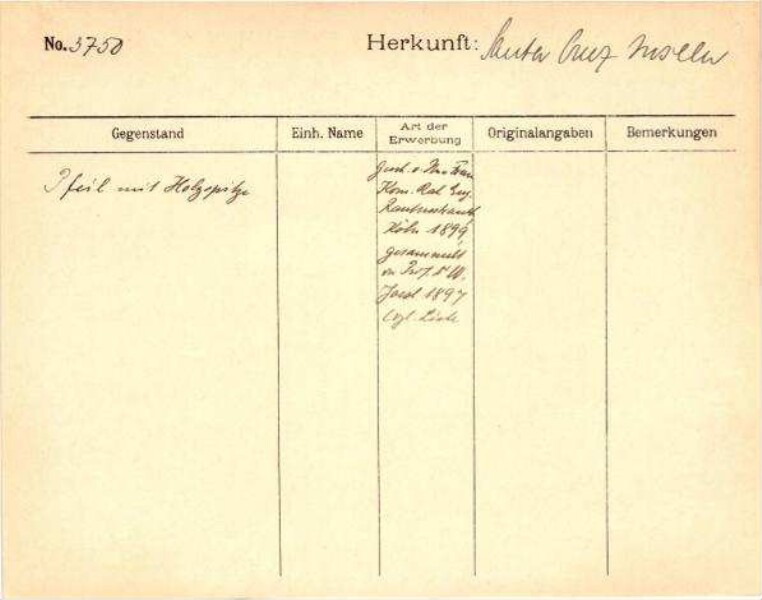 No. 3750
Herkunft: Santa Cruz Inseln
Gegenstand
Einh. Name
Art der Erwerbung
Originalangaben
Bemerkungen
Pfeil mit Holzspitze
Gesch. v. Frau
Kom. Rat Eug.
Rautenstrauch
Köln 1899,
gesammelt
von Prof. Dr W.
Joest 1897
(vgl. Liste